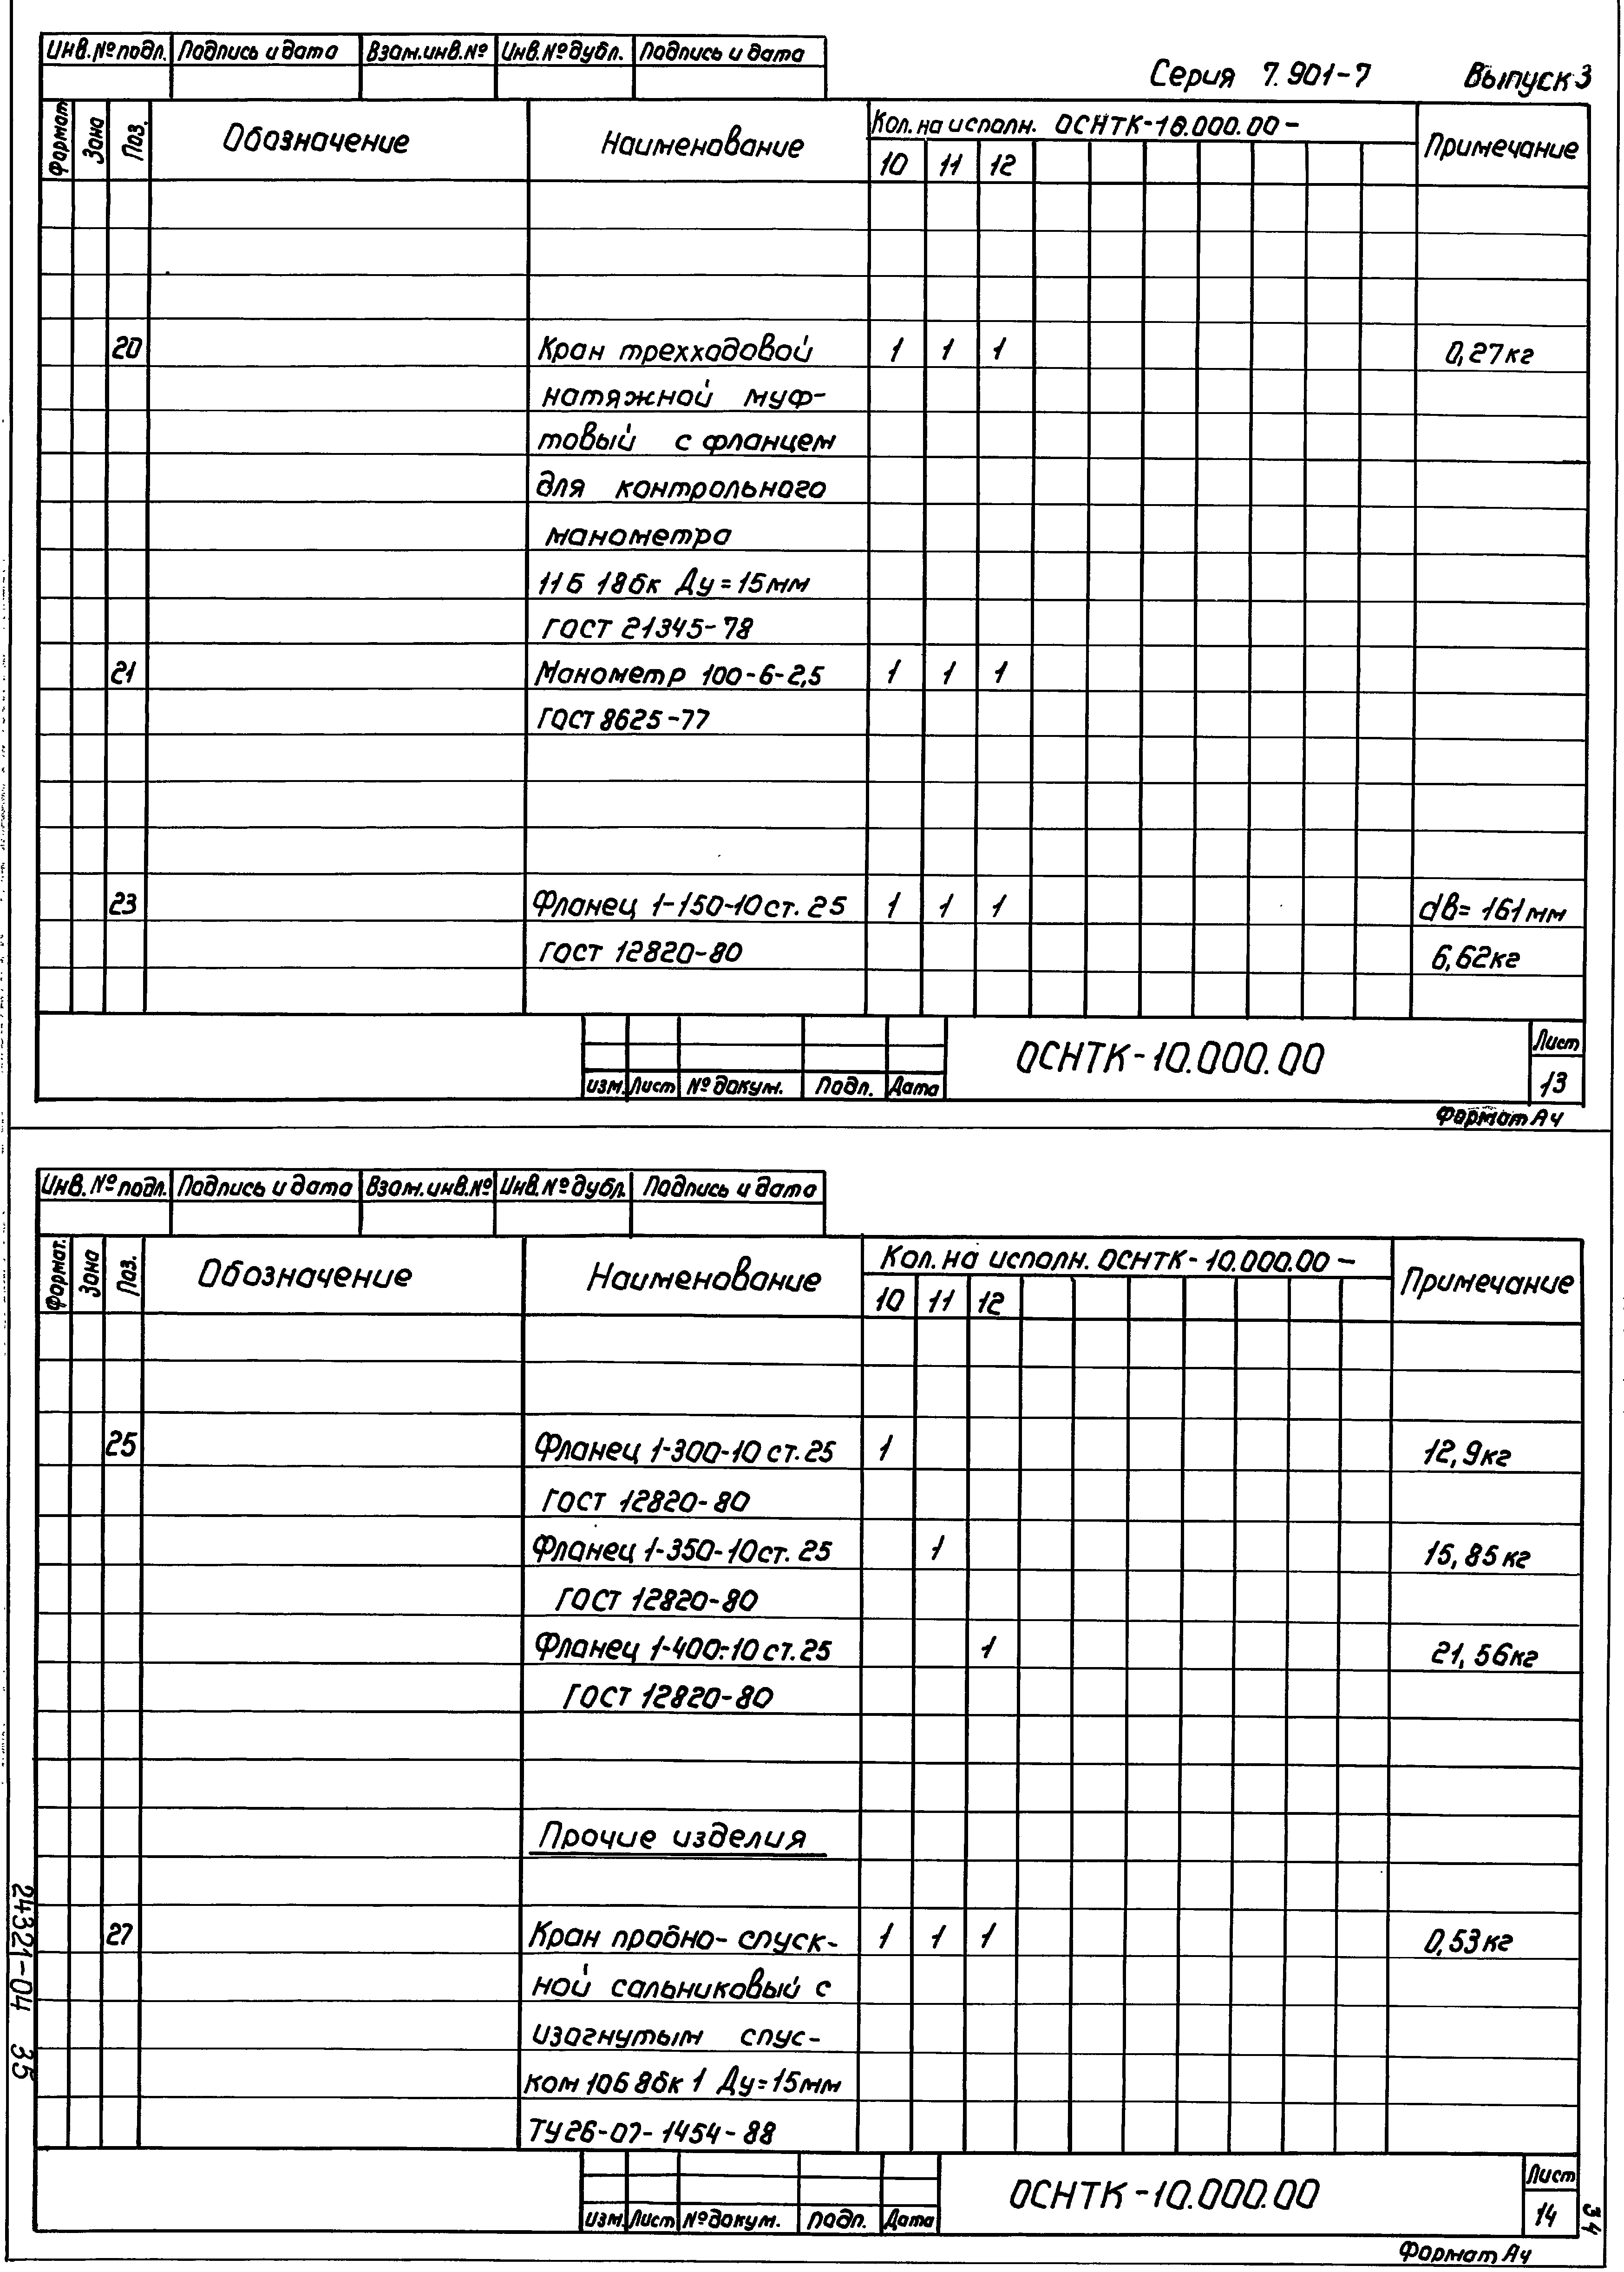 Инв.№подл. Подпись и дата Взам.инв.№ Инв.№дубл. Подпись и дата
Серия 7.901-7 Выпуск 3
Формат Зона Поз. Обозначение Наименование Кол. на исполн. ОСНТК-10.000.00- Примечание
10 11 12
20 Кран трехходовой 1 1 1 0,27кг
натяжной муф-
товый с фланцем
для контрольного
манометра
11Б 18бк Ду=15мм
ГОСТ 21345-78
21 Манометр 100-6-2,5 1 1 1
ГОСТ 8625-77
23 Фланец 1-150-10 ст. 25 1 1 1 dв= 161мм
ГОСТ 12820-80 6,62кг
ОСНТК-10.000.00
Лист
13
изм. Лист № докум. Подп. Дата
Формат А4
Инв. № подл. Подпись и дата Взам.инв.№ Инв.№дубл. Подпись и дата
Формат. Зона Поз. Обозначение Наименование Кол. на исполн. ОСНТК-10.000.00- Примечание
10 11 12
25 Фланец 1-300-10 ст. 25 1 12,9кг
ГОСТ 12820-80
Фланец 1-350-10 ст. 25 1 15,85кг
ГОСТ 12820-80
Фланец 1-400-10 ст. 25 1 21,56кг
ГОСТ 12820-80
Прочие изделия
27 Кран пробно-спуск- 1 1 1 0,53кг
ной сальниковый с
изогнутым спус-
ком 10Б 8бк 1 Ду=15мм
ТУ26-07-1454-88
ОСНТК-10.000.00
Лист
14
изм. Лист № докум. подп. Дата
Формат А4
24321-04 35
34